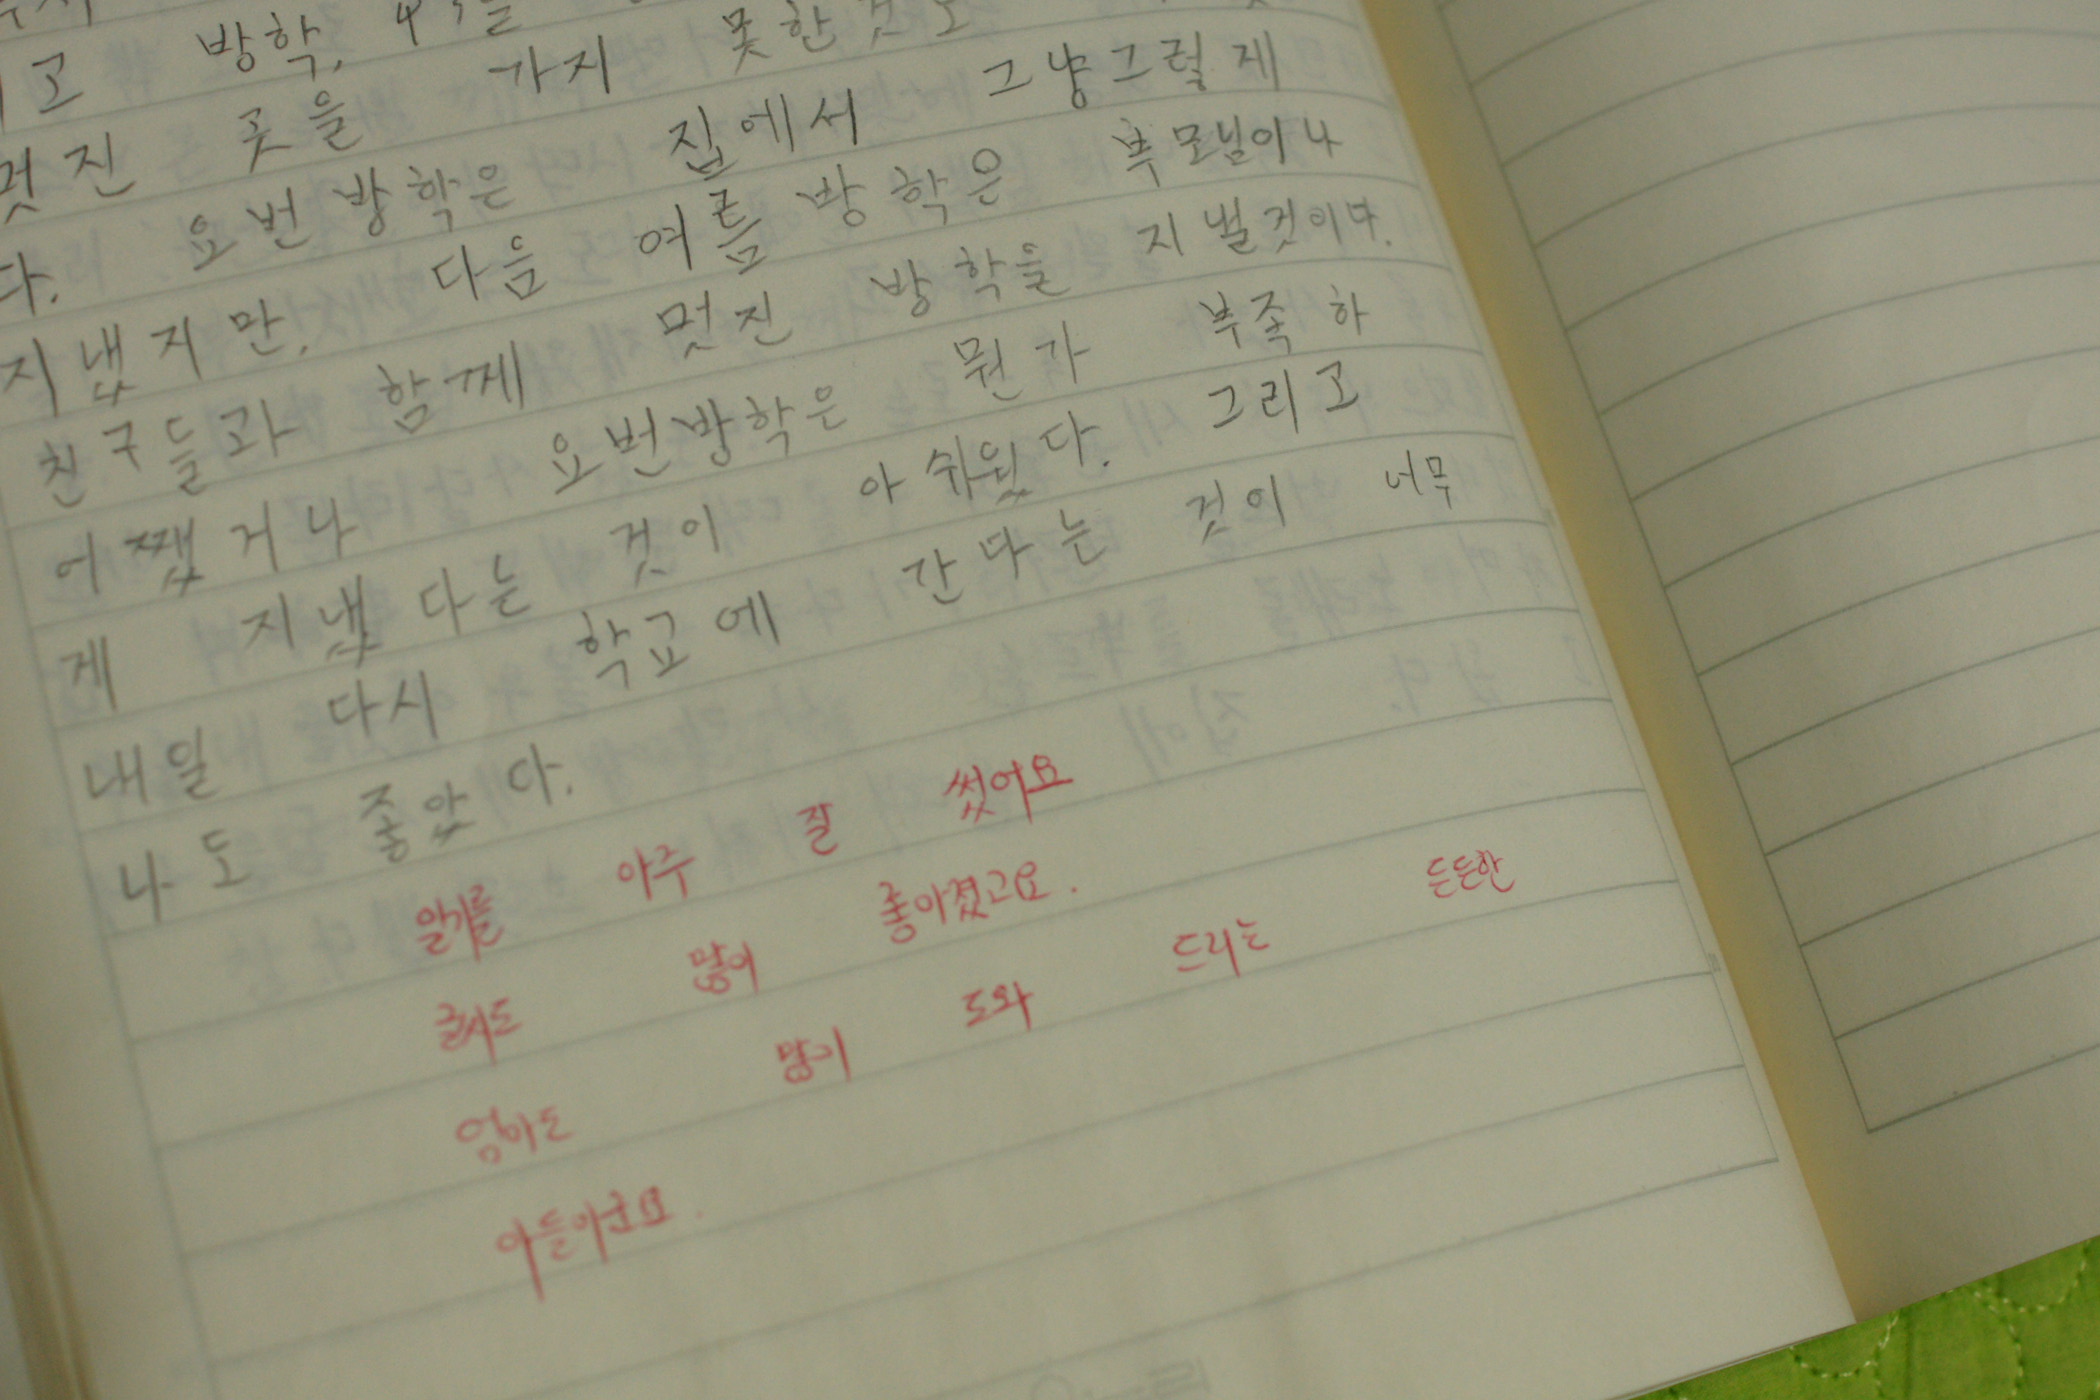 고 방학,
멋진 곳을 가지 못한것도
다. 요번 방학은 집에서 그냥그럴게
지냈지만, 다음 여름 방학은 부모님이나
친구들과 함께 멋진 방학을 지낼것이다.
어쨌거나 요번방학은 뭔가 부족하
게 지냈다는 것이 아쉬웠다. 그리고
내일 다시 학교에 간다는 것이 너무
나도 좋았다.
일기를 아주 잘 썼어요
글씨도 많이 좋아졌고요.
엄마도 많이 도와 드리는 든든한
아들이군요.